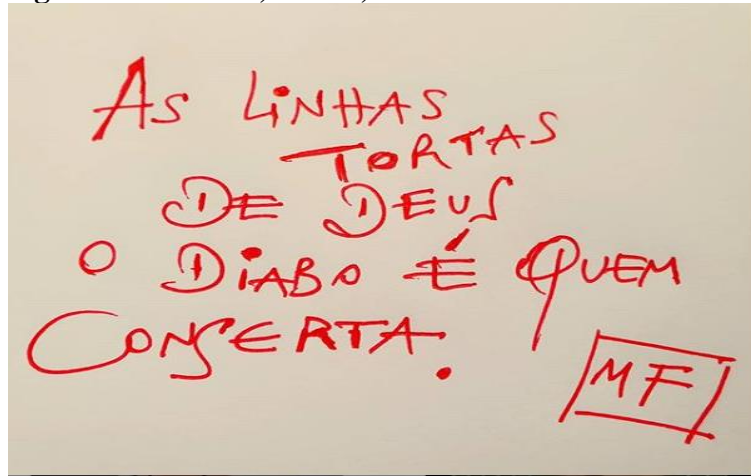 As LiNHAS
TORTAS
DE DEUS
O DiABO É QUEM
CONSERTA.
MF